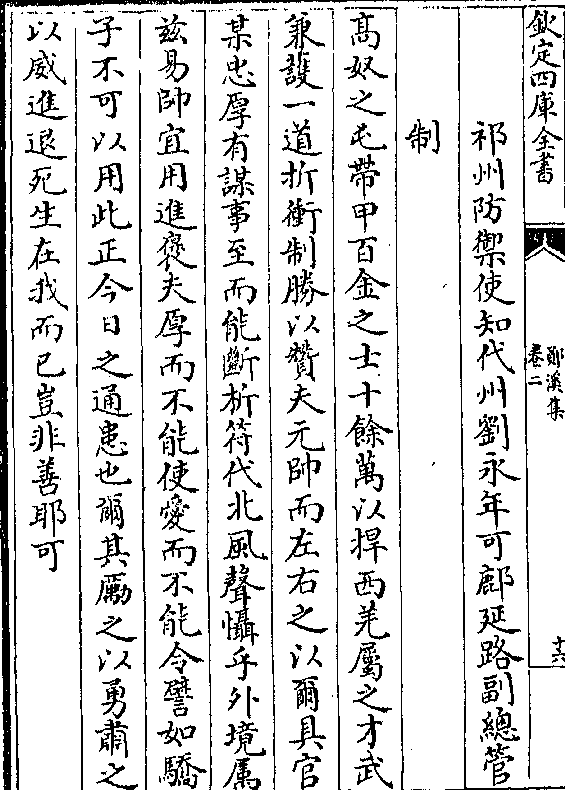 欽定四庫全書
鄖溪集
卷二
十六
祁州防禦使知代州劉永年可鄜延路副總管
制
髙奴之屯帶甲百金之士十餘萬以捍西羌屬之才武
兼䕶一道折衝制勝以贊夫元帥而左右之以爾具官
某忠厚有謀事至而能斷析符代北風聲懾乎外境属
兹易帥宜用進褒夫厚而不能使愛而不能令譬如驕
子不可以用此正今日之通患也爾其勵之以勇肅之
以威進退死生在我而已豈非善耶可